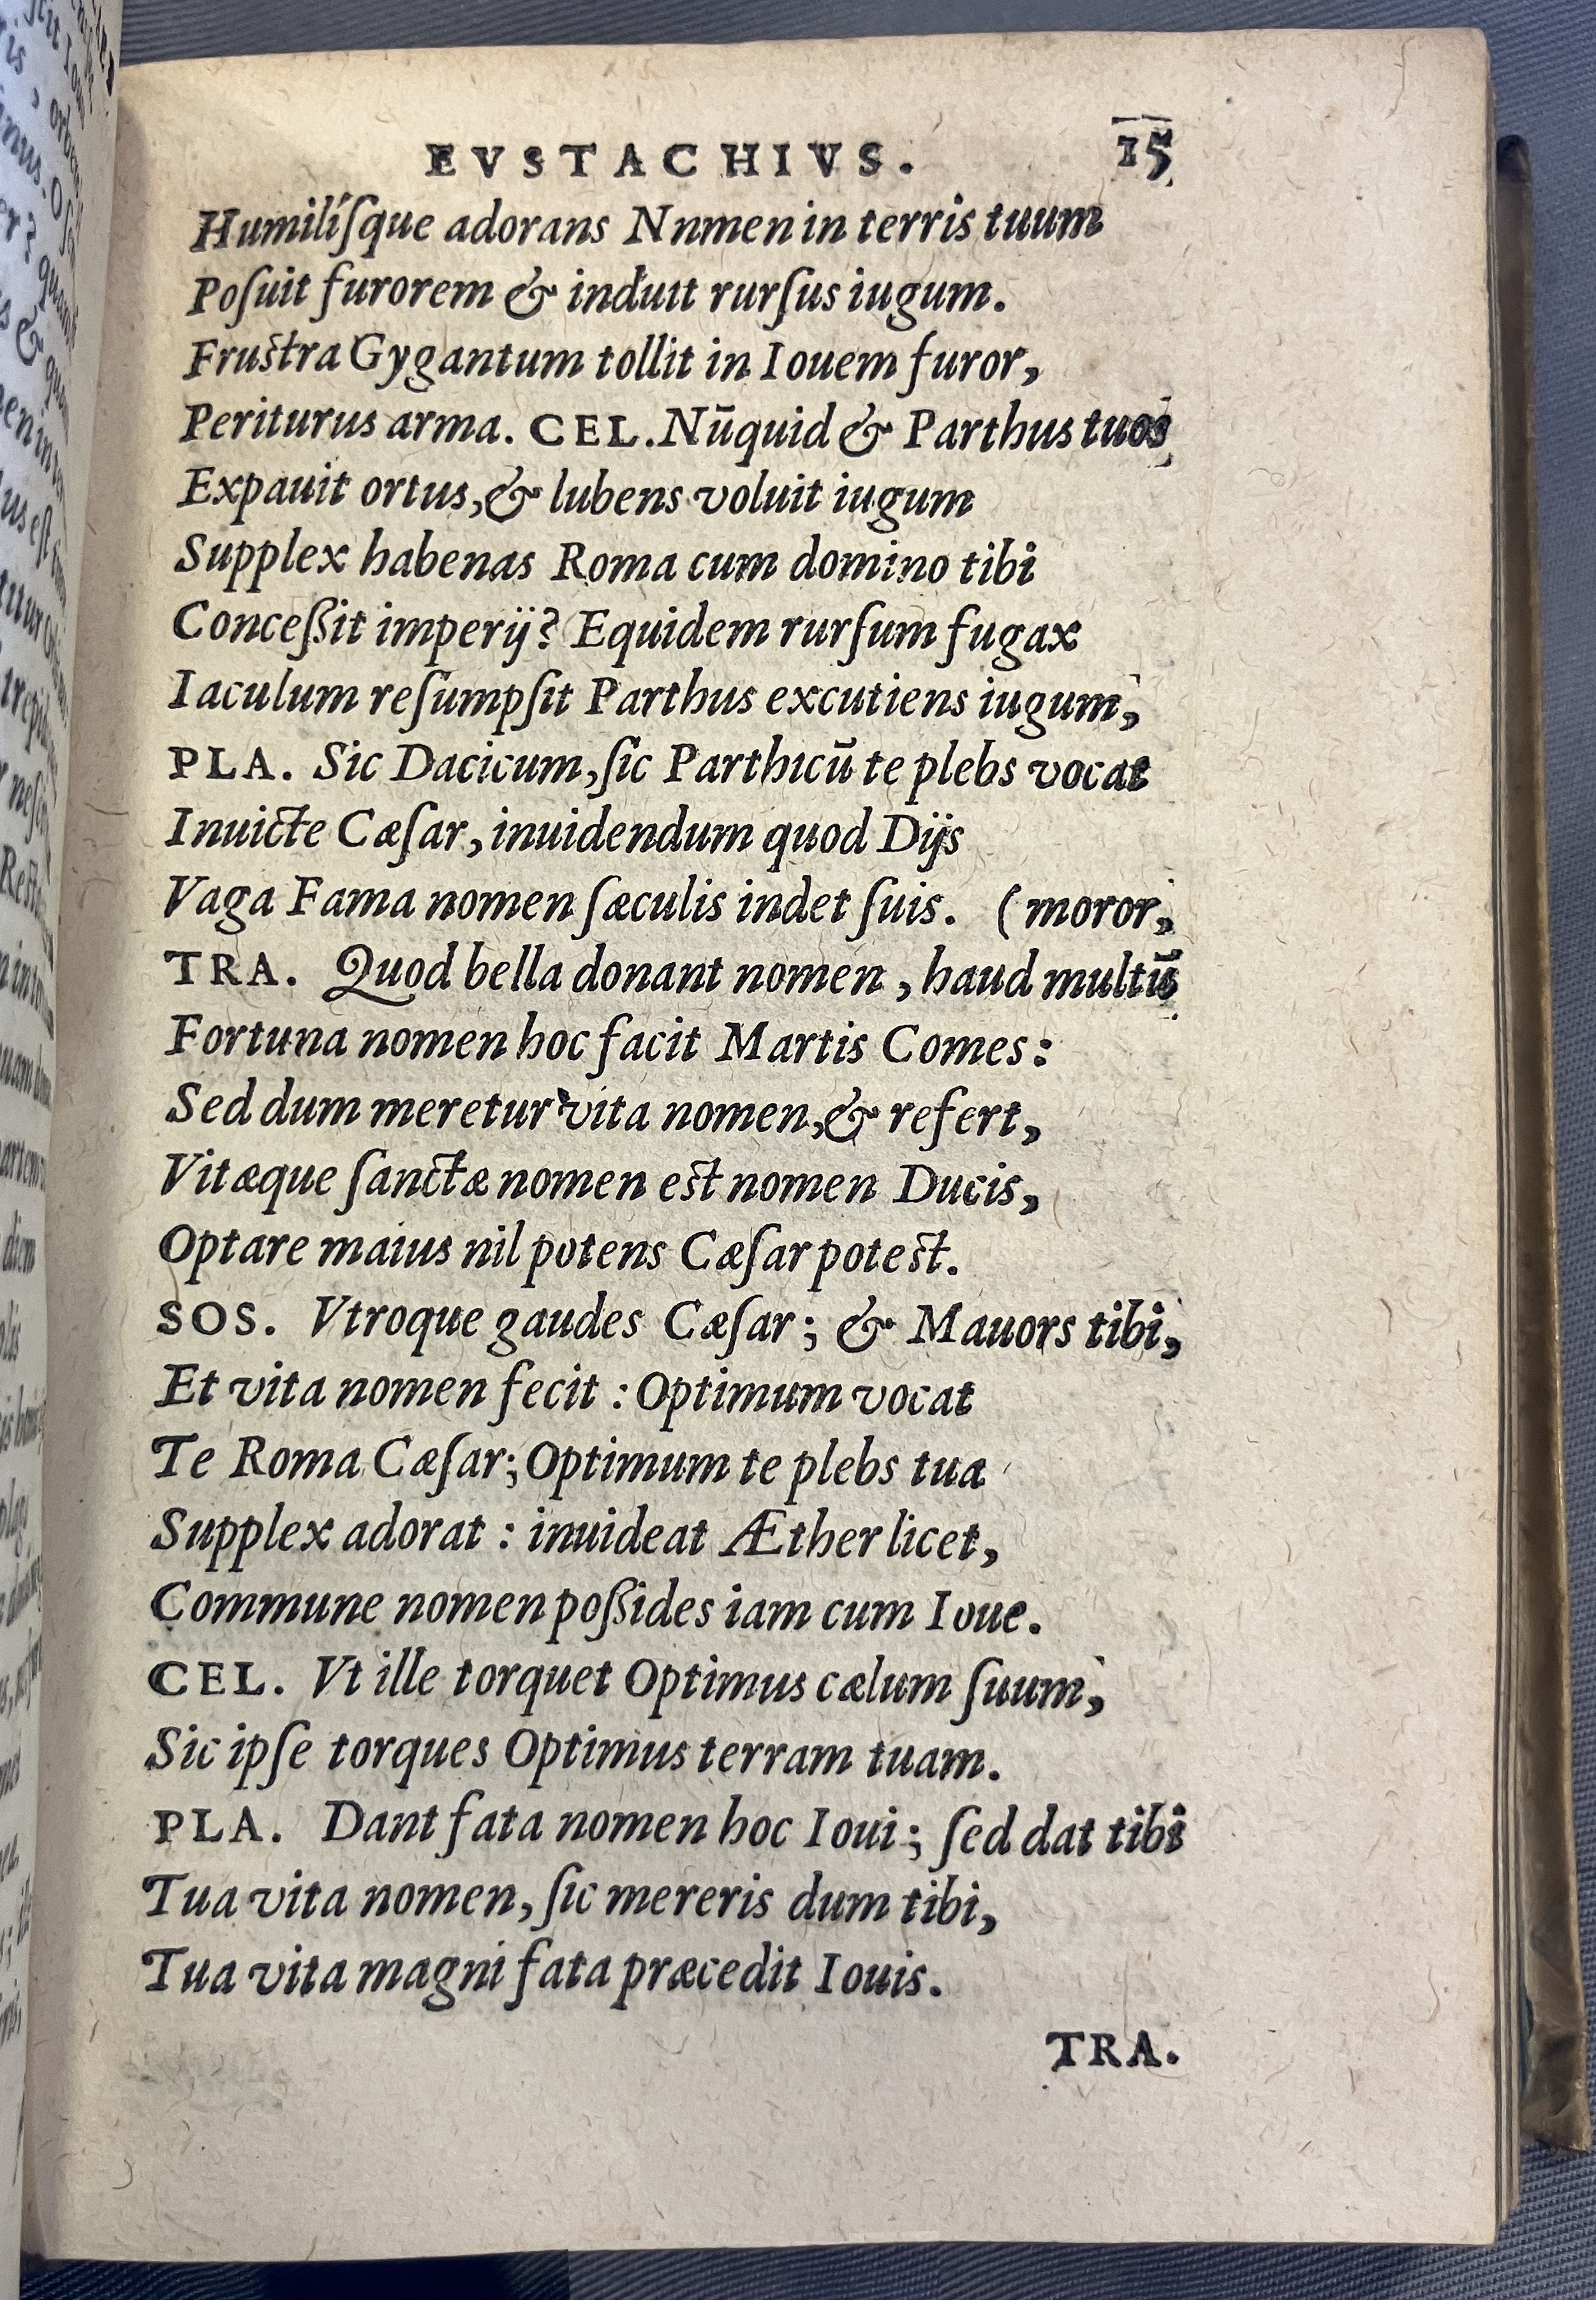 EVSTACHIVS. 15
Humilíſque adorans Nnmen in terris tuum
Poſuit furorem & induit rurſus iugum.
Fruſtra Gygantum tollit in Iouem furor,
Periturus arma. CEL. Nūquid & Parthus tuos
Expauit ortus, & lubens voluit iugum
Supplex habenas Roma cum domino tibi
Conceßit imperij? Equidem rurſum fugax
Iaculum reſumpſit Parthus excutiens iugum,
PLA. Sic Dacicum, ſic Parthicū te plebs vocat
Inuicte Cæſar, inuidendum quod Dijs
Vaga Fama nomen ſæculis indet ſuis. (moror,
TRA. Quod bella donant nomen, haud multũ
Fortuna nomen hoc facit Martis Comes:
Sed dum meretur vita nomen, & refert,
Vitæque ſanctæ nomen eſt nomen Ducis,
Optare maius nil potens Cæſar poteſt.
SOS. Vtroque gaudes Cæſar; & Mauors tibi,
Et vita nomen fecit : Optimum vocat
Te Roma Cæſar; Optimum te plebs tua
Supplex adorat : inuideat Æther licet,
Commune nomen poßides iam cum Ioue.
CEL. Vt ille torquet Optimus cælum ſuum,
Sic ipſe torques Optimus terram tuam.
PLA. Dant fata nomen hoc Ioui; ſed dat tibi
Tua vita nomen, ſic mereris dum tibi,
Tua vita magni fata præcedit Iouis.
TRA.